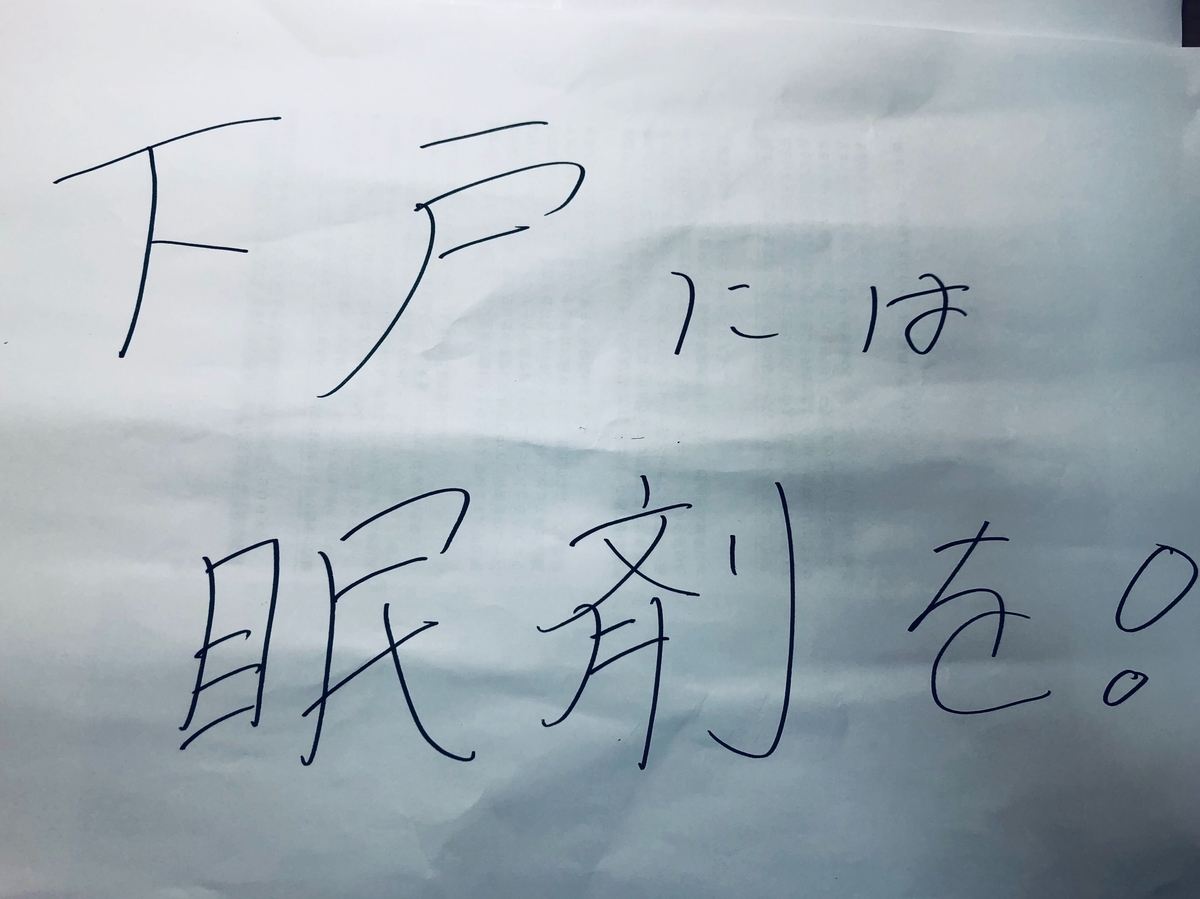 下戸には
眠剤を!